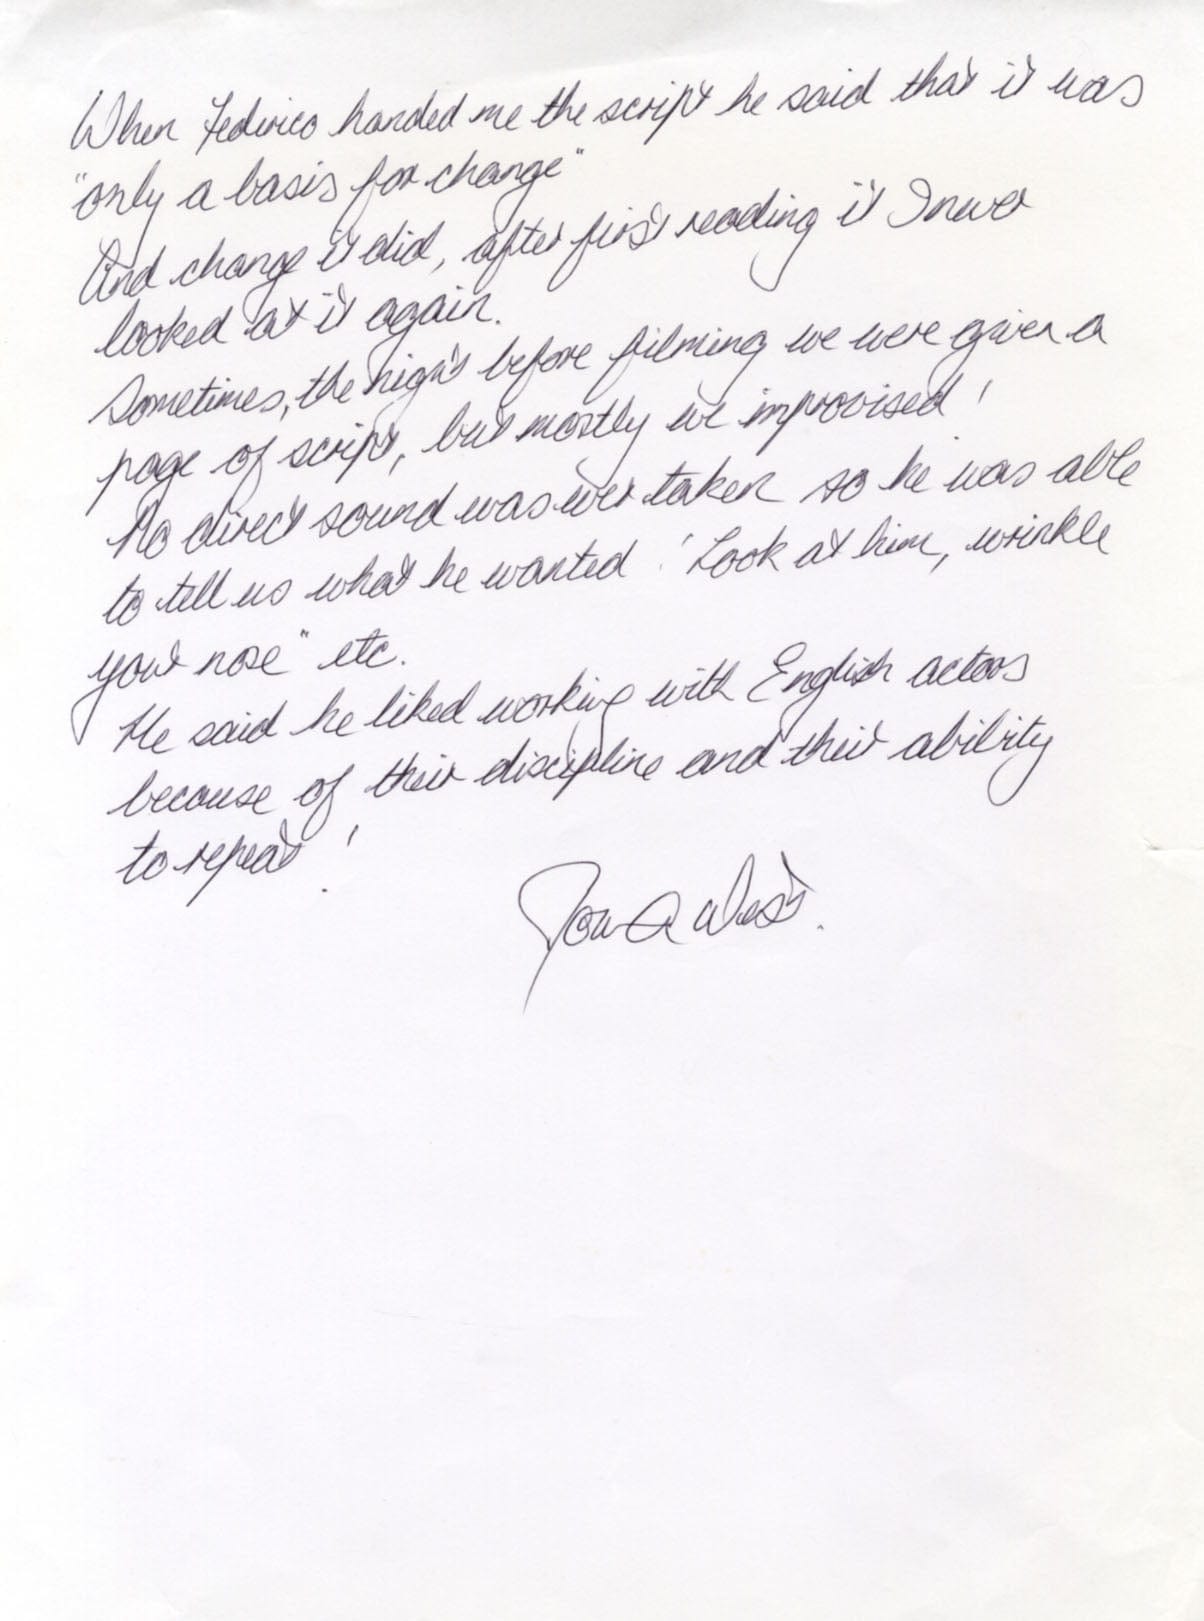 When Federico handed me the script he said that it was
"only a basis for change"
And change it did, after first reading it I never
looked at it again.
Sometimes, the night before filming we were given a
page of script, but mostly we improvised!
No direct sound was ever taken so he was able
to tell us what he wanted! 'Look at him, wrinkle
your nose" etc.
He said he liked working with English actors
because of their discipline and their ability
to repeat!
West.